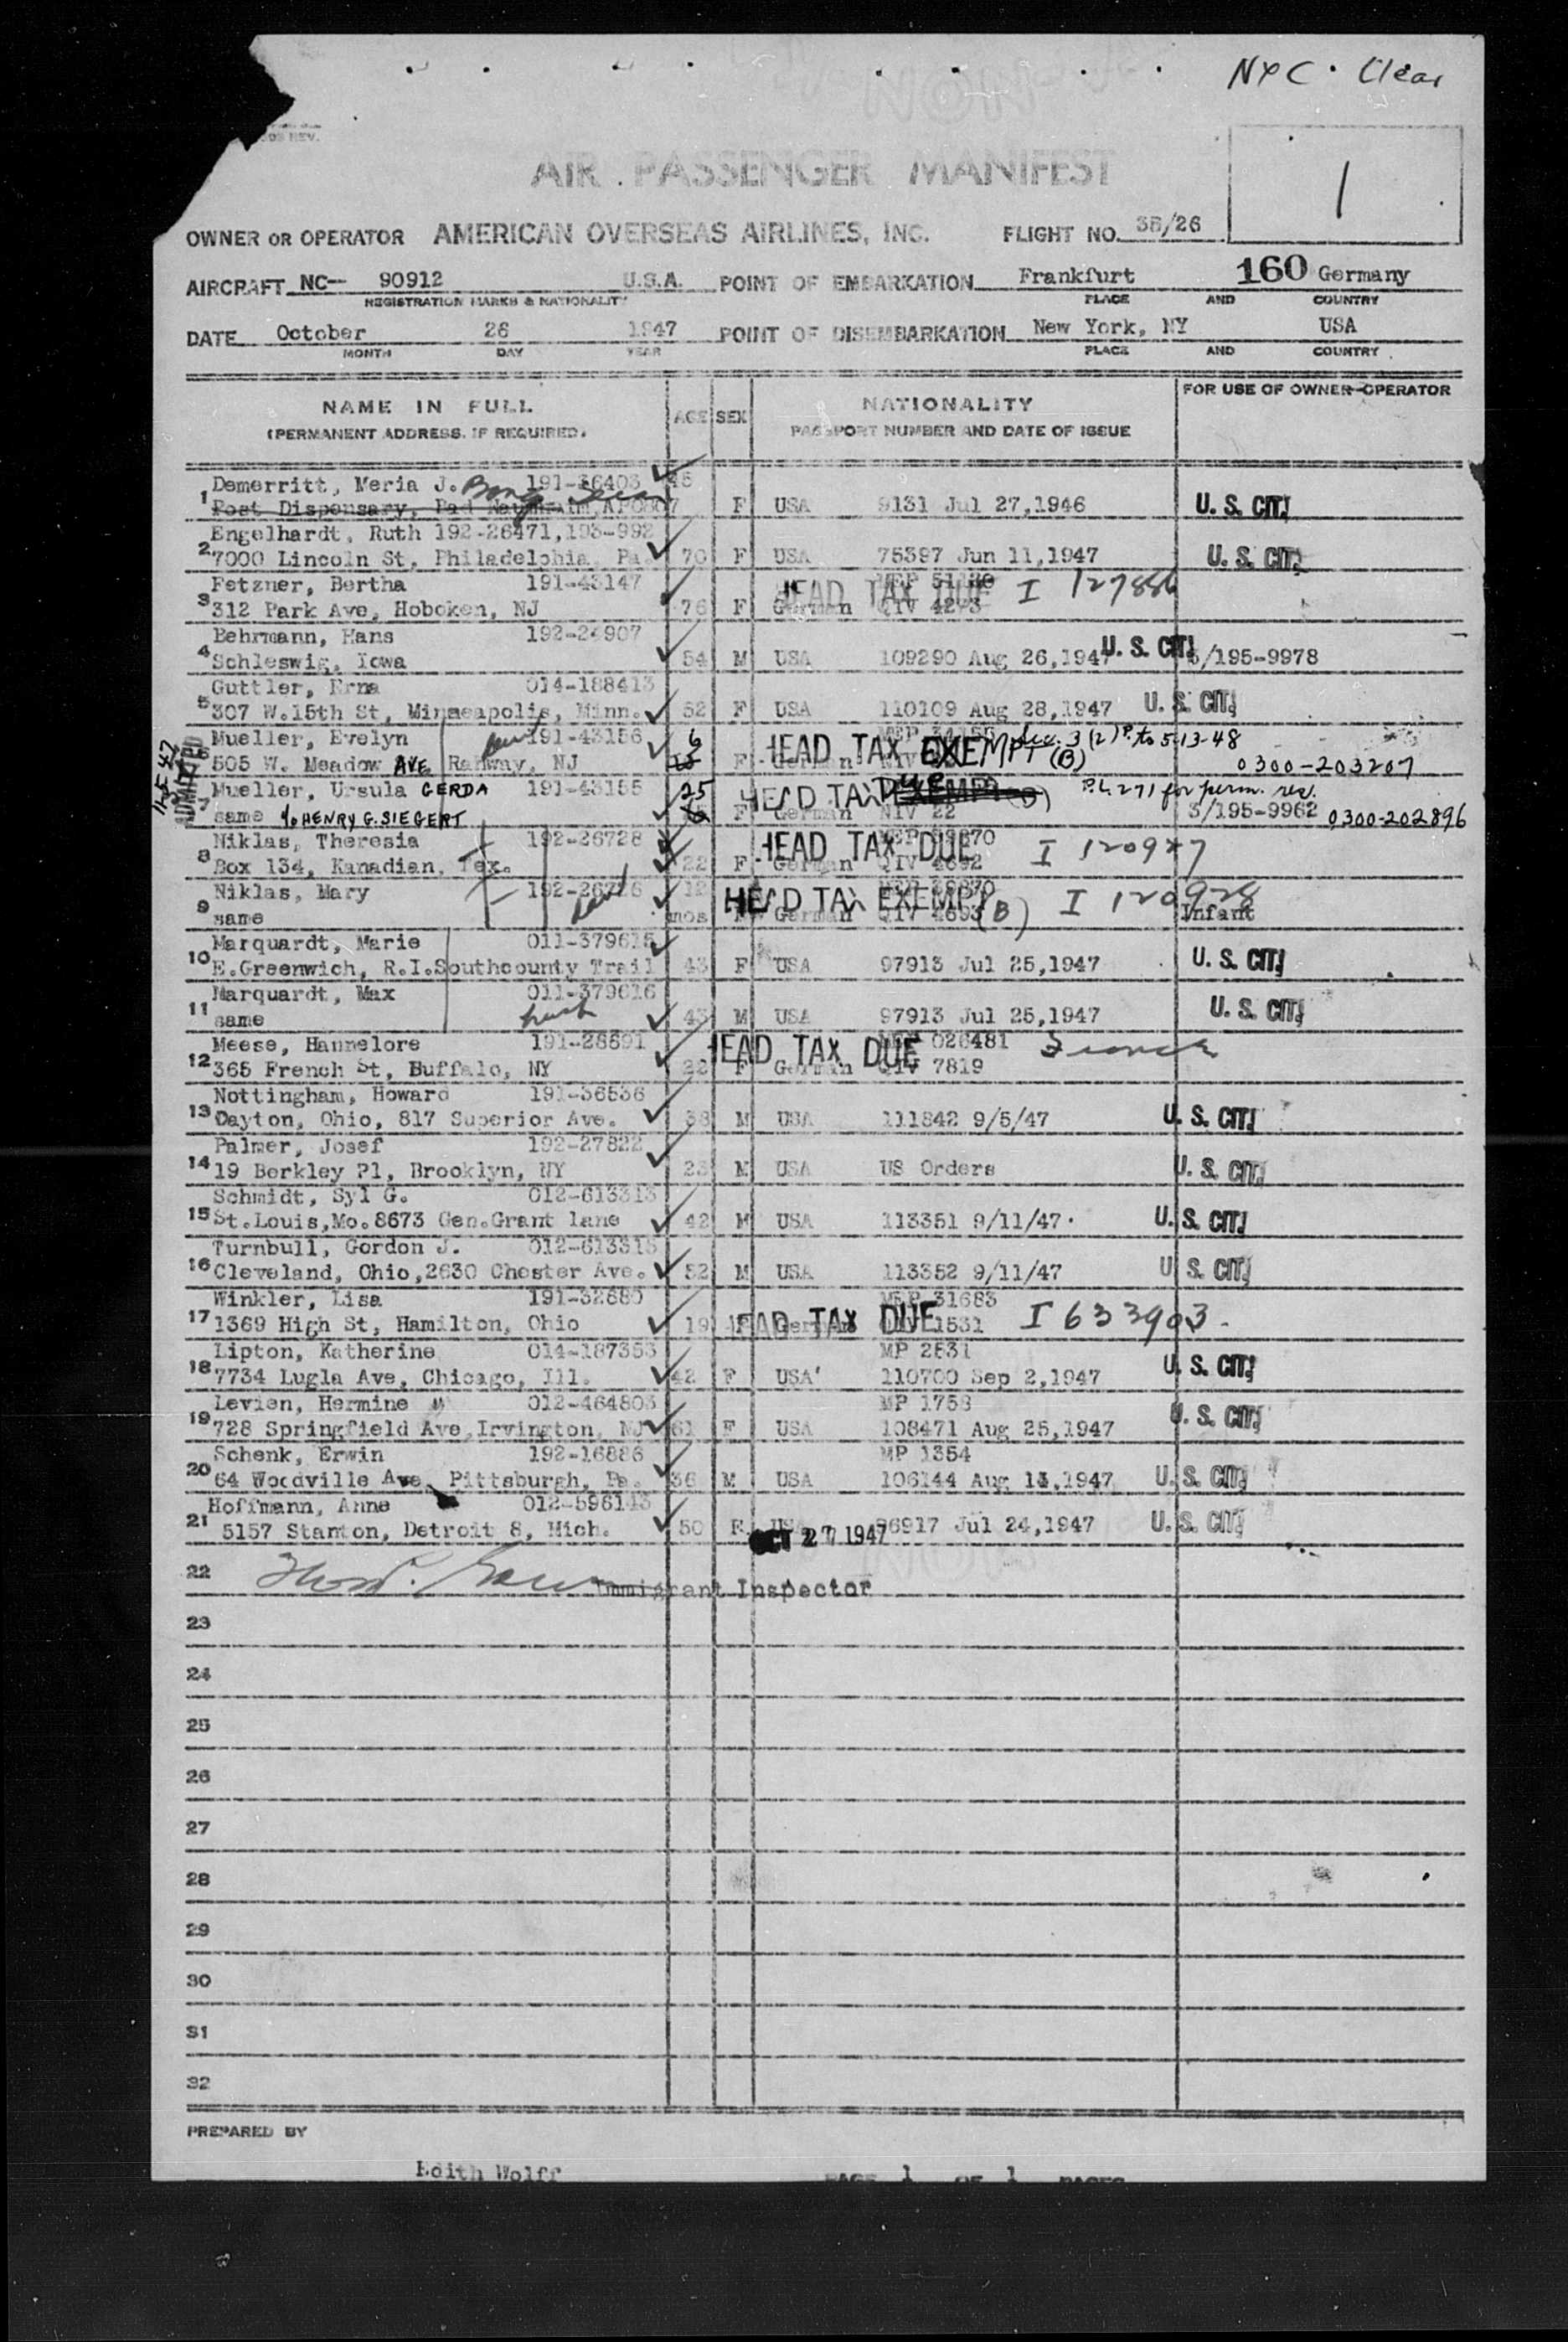 NYC. Clear
REV.
AIR PASSENGER MANIFEST
1
OWNER OR OPERATOR AMERICAN OVERSEAS AIRLINES, INC. FLIGHT NO. 35/26
AIRCRAFT NC-- 90912 U.S.A. POINT OF EMBARKATION Frankfurt 160 Germany
REGISTRATION MARKS & NATIONALITY PLACE AND COUNTRY
DATE October 26 1947 POINT OF DISEMBARKATION New York, NY USA
MONTH DAY YEAR PLACE AND COUNTRY
NAME IN FULL AGE SEX NATIONALITY FOR USE OF OWNER-OPERATOR
(PERMANENT ADDRESS. IF REQUIRED. PASSPORT NUMBER AND DATE OF ISSUE
Demerritt, Meria J. 191-36403 45
1 Post Dispensary, Bad Nauheim, APO807 F USA 9131 Jul 27,1946 U. S. CIT.
Engelhardt, Ruth 192-26471,193-992
2 7000 Lincoln St, Philadelphia, Pa. 70 F USA 75397 Jun 11,1947 U. S. CIT.
Fetzner, Bertha 191-43147 HEAD TAX DUE I 127886
3 312 Park Ave, Hoboken, NJ 76 F German QIV 4273
Behrmann, Hans 192-24907
4 Schleswig, Iowa 54 M USA 109290 Aug 26,1947 U. S. CIT. 3/195-9978
Guttler, Erna 014-188413
5 307 W.15th St, Minneapolis, Minn. 52 F USA 110109 Aug 28,1947 U. S. CIT.
ADMITTED
Mueller, Evelyn 191-43156 6 HEAD TAX EXEMPT (B) Sec. 3(2) P. to 5-13-48
6 505 W. Meadow AVE Rahway, NJ F German 0300-203207
Mueller, Ursula GERDA 191-43155 25 HEAD TAX DUE EXEMPT (B) P.L. 271 for perm. res.
7 same c/o HENRY G. SIEGERT F German NIV 22 3/195-9962 0300-202896
Niklas, Theresia 192-26728 HEAD TAX DUE I 120927
8 Box 134, Kanadian, Tex. 22 F German QIV 4692
Niklas, Mary 192-26726 12 HEAD TAX EXEMPT (B) I 120928
9 same mos F German QIV 4693 Infant
Marquardt, Marie 011-379615
10 E.Greenwich, R.I.Southcounty Trail 43 F USA 97913 Jul 25,1947 U. S. CIT.
Marquardt, Max 011-379616
11 same 43 M USA 97913 Jul 25,1947 U. S. CIT.
Meese, Hannelore 191-28691 HEAD TAX DUE 026481
12 365 French St, Buffalo, NY 22 F German QIV 7819
Nottingham, Howard 191-36536
13 Dayton, Ohio, 817 Superior Ave. 38 M USA 111842 9/5/47 U. S. CIT.
Palmer, Josef 192-27822
14 19 Berkley Pl, Brooklyn, NY 23 M USA US Orders U. S. CIT.
Schmidt, Syl G. 012-613313
15 St.Louis,Mo.8673 Gen.Grant lane 42 M USA 113351 9/11/47 U. S. CIT.
Turnbull, Gordon J. 012-613315
16 Cleveland, Ohio,2630 Chester Ave. 52 M USA 113352 9/11/47 U. S. CIT.
Winkler, Lisa 191-32680 MEP 31683
17 1369 High St, Hamilton, Ohio 19 F German HEAD TAX DUE 1531 I 633903
Lipton, Katherine 014-187353 MP 2531
18 7734 Lugla Ave, Chicago, Ill. 42 F USA 110700 Sep 2,1947 U. S. CIT.
Levien, Hermine 012-464803 MP 1758
19 728 Springfield Ave,Irvington, NJ 61 F USA 108471 Aug 25,1947 U. S. CIT.
Schenk, Erwin 192-16886 MP 1354
20 64 Woodville Ave, Pittsburgh, Pa. 36 M USA 106144 Aug 14,1947 U. S. CIT.
Hoffmann, Anne 012-596143
21 5157 Stanton, Detroit 8, Mich. 50 F USA 96917 Jul 24,1947 U. S. CIT.
OCT 27 1947
22 Immigrant Inspector
23
24
25
26
27
28
29
30
31
32
PREPARED BY
Edith Wolff PAGE 1 OF 1 PAGES